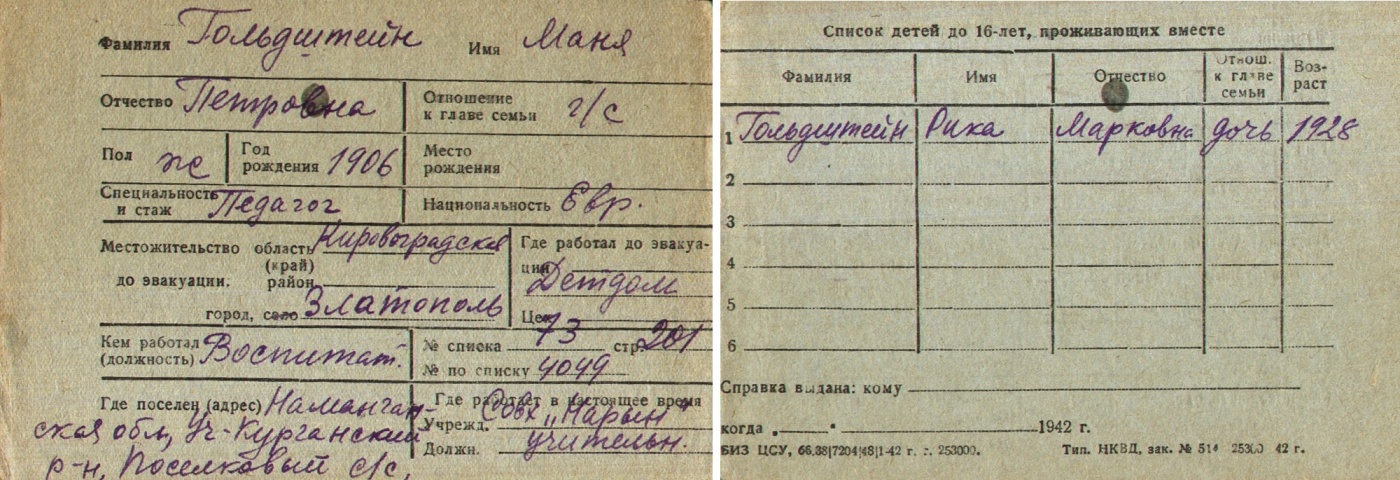 Фамилия Гольдштейн Имя Маня
Отчество Петровна Отношение к главе семьи г/с
Пол ж Год рождения 1906 Место рождения
Специальность и стаж Педагог Национальность Евр.
Местожительство до эвакуации. область (край) Кировоградская
район
город, село Златополь
Где работал до эвакуации Детдом
Цех
Кем работал (должность) Воспитат. № списка 73 стр. 201
№ по списку 4049
Где поселен (адрес) Наманган-
ская обл, Уч-Курганский
р-н, Поселковый с/с,
Где работает в настоящее время
Учрежд. Совх „Нарын"
Должн. учительн.
Список детей до 16-лет, проживающих вместе
Фамилия Имя Отчество Отнош. к главе семьи Возраст
1 Гольдштейн Рика Марковна дочь 1928
2
3
4
5
6
Справка выдана: кому
когда „ " 1942 г.
БИЗ ЦСУ, 66.38|7204|48|1-42 г. г. 253000. Тип. НКВД, зак. № 514 42 г.